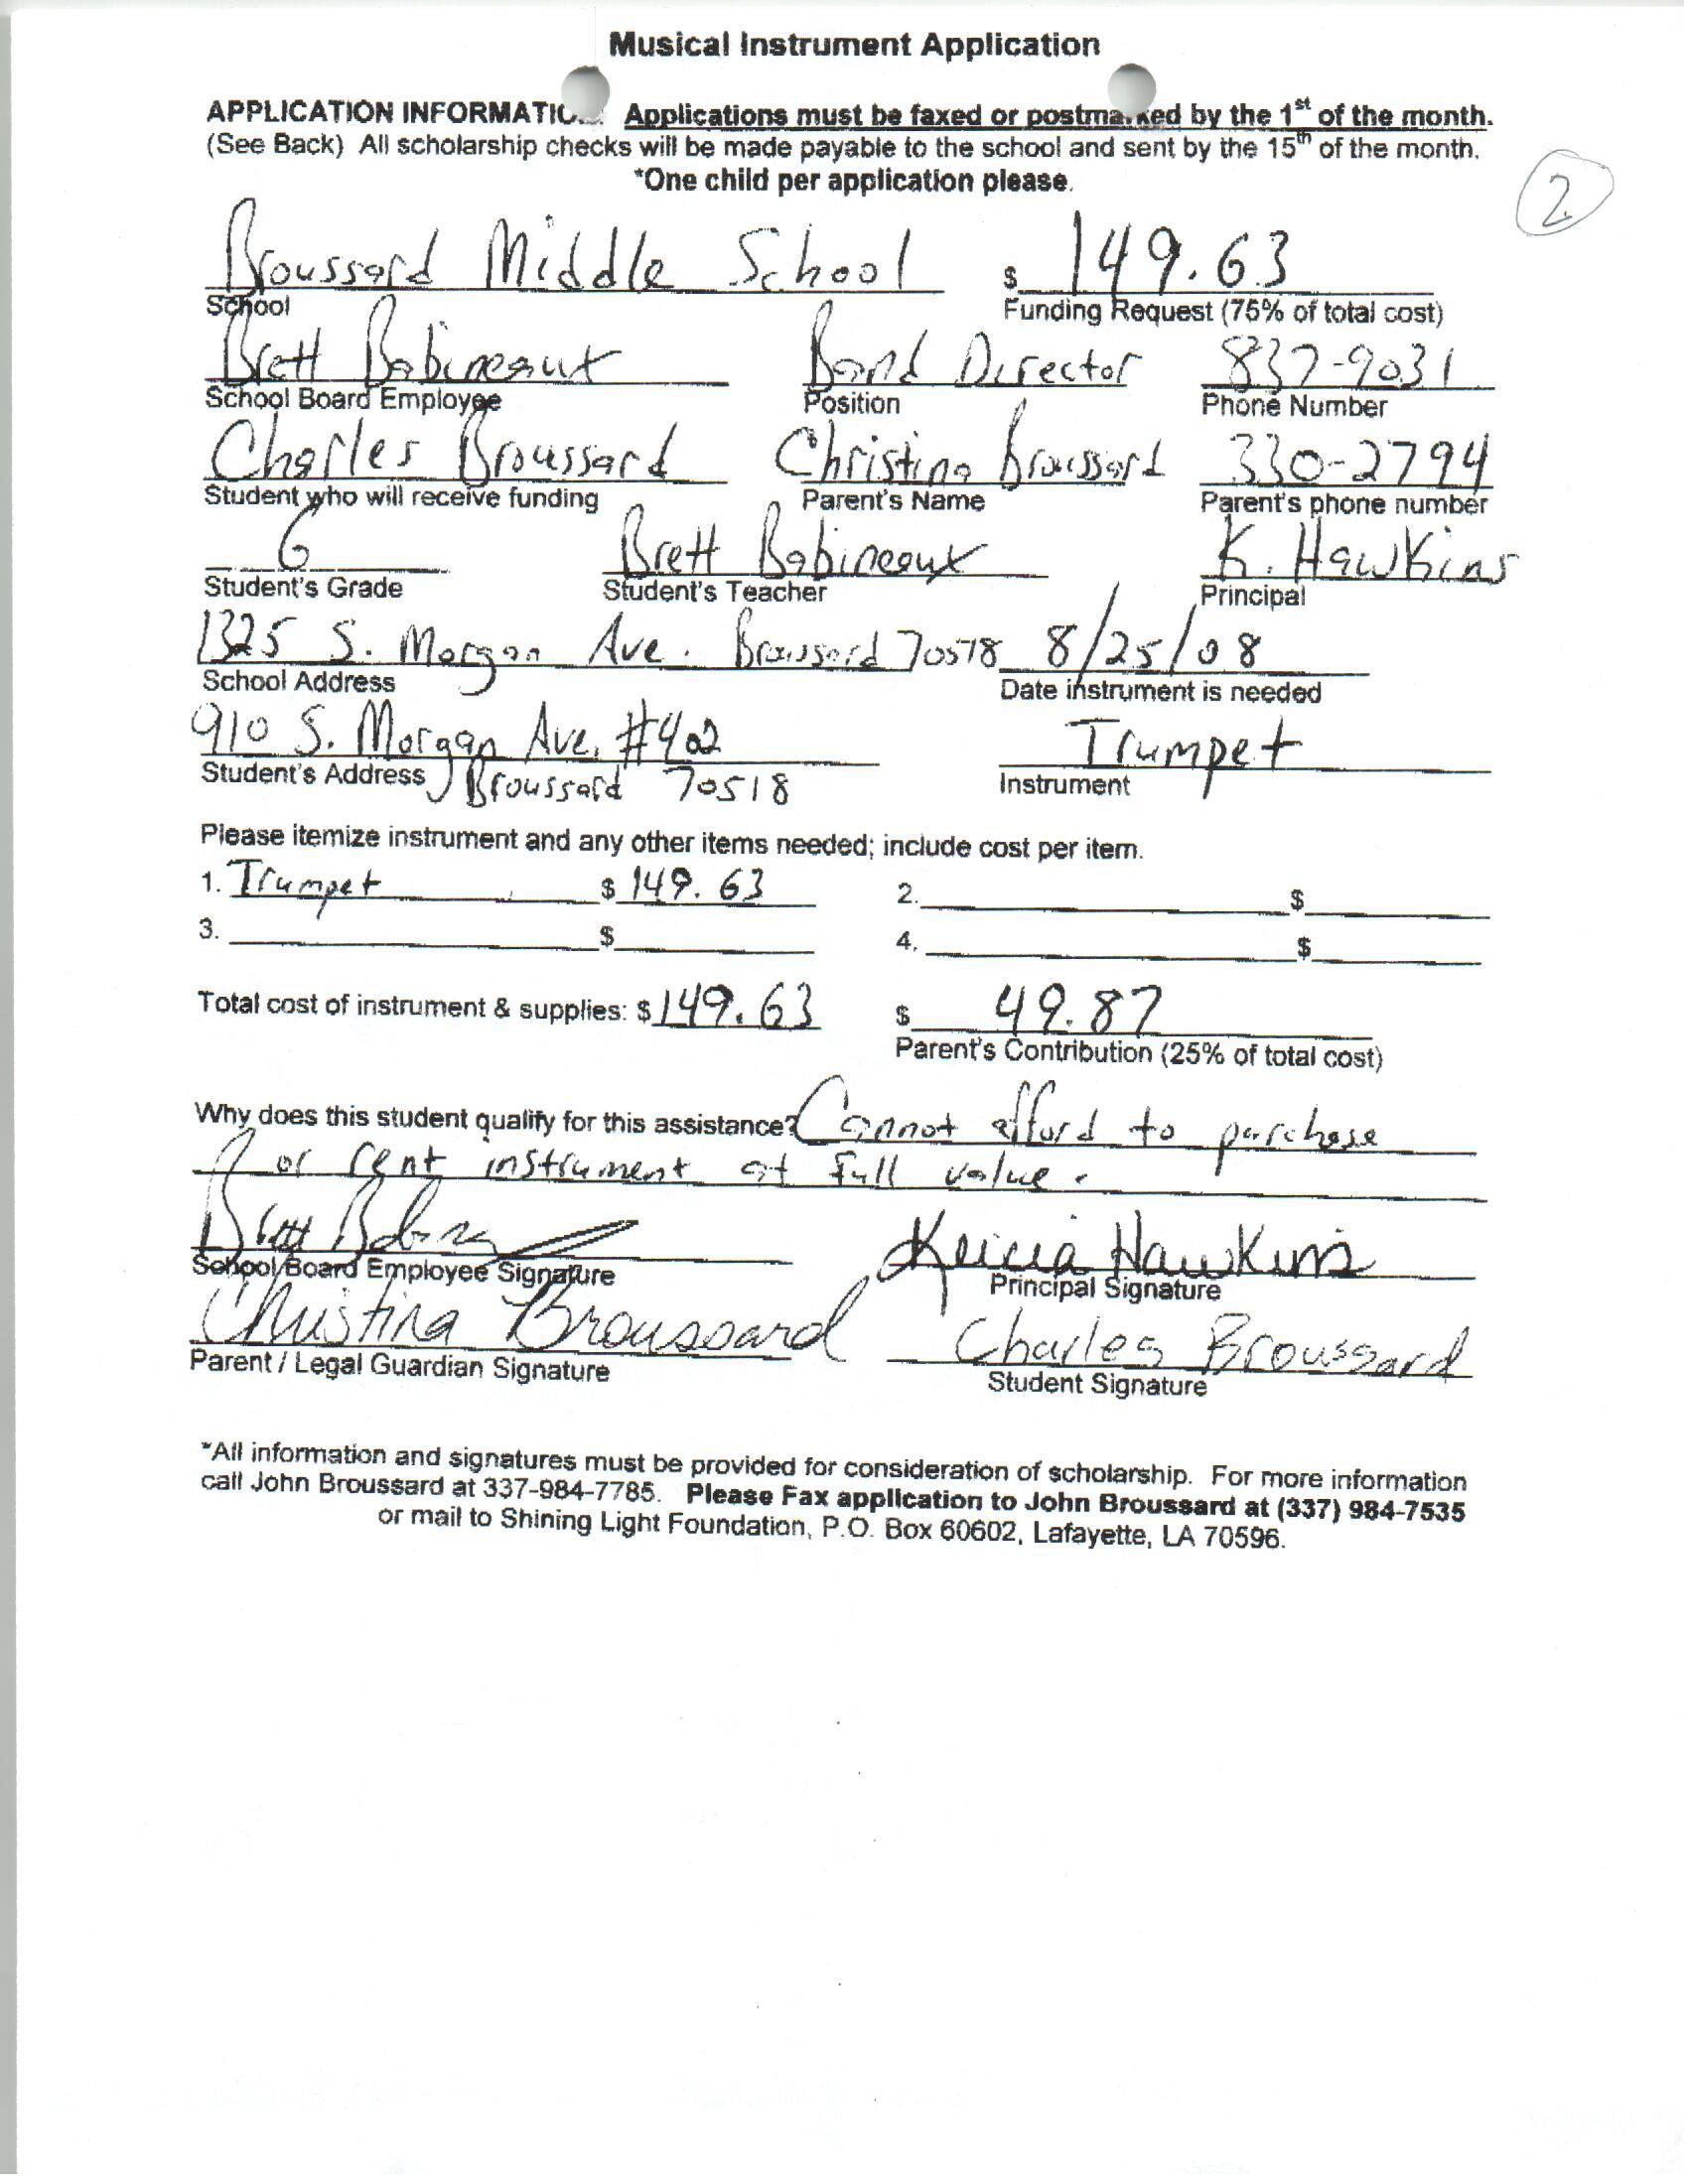 Musical Instrument Application
APPLICATION INFORMATIO Applications must be faxed or postmarked by the 1st of the month.
(See Back) All scholarship checks will be made payable to the school and sent by the 15th of the month.
*One child per application please.
2
Broussard Middle School $ 149.63
School Funding Request (75% of total cost)
Brett Babineaux Band Director 837-9031
School Board Employee Position Phone Number
Charles Broussard Christina Broussard 330-2794
Student who will receive funding Parent's Name Parent's phone number
6 Brett Babineaux K. Hawkins
Student's Grade Student's Teacher Principal
1325 S. Morgan Ave. Broussard 70518 8/25/08
School Address Date instrument is needed
910 S. Morgan Ave. #402 Trumpet
Student's Address Broussard 70518 Instrument
Please itemize instrument and any other items needed; include cost per item.
1. Trumpet $ 149.63 2. $
3. $ 4. $
Total cost of instrument & supplies: $ 149.63 $ 49.87
Parent's Contribution (25% of total cost)
Why does this student qualify for this assistance? Cannot afford to purchase
or rent instrument at full value.
Brett Babineaux Keicia Hawkins
School Board Employee Signature Principal Signature
Christina Broussard Charles Broussard
Parent / Legal Guardian Signature Student Signature
*All information and signatures must be provided for consideration of scholarship. For more information
call John Broussard at 337-984-7785. Please Fax application to John Broussard at (337) 984-7535
or mail to Shining Light Foundation, P.O. Box 60602, Lafayette, LA 70596.